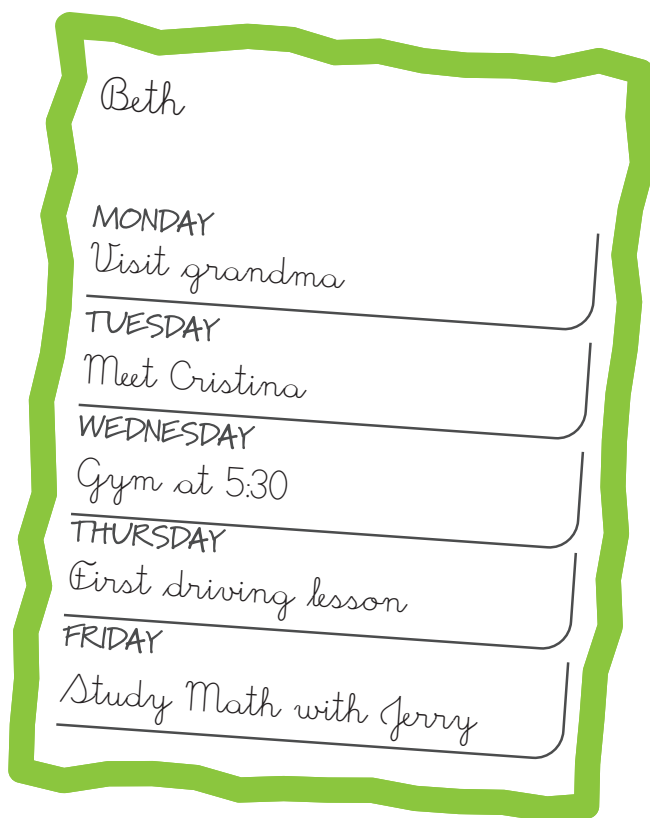 Beth
MONDAY
Visit grandma
TUESDAY
Meet Cristina
WEDNESDAY
Gym at 5:30
THURSDAY
First driving lesson
FRIDAY
Study Math with Jerry